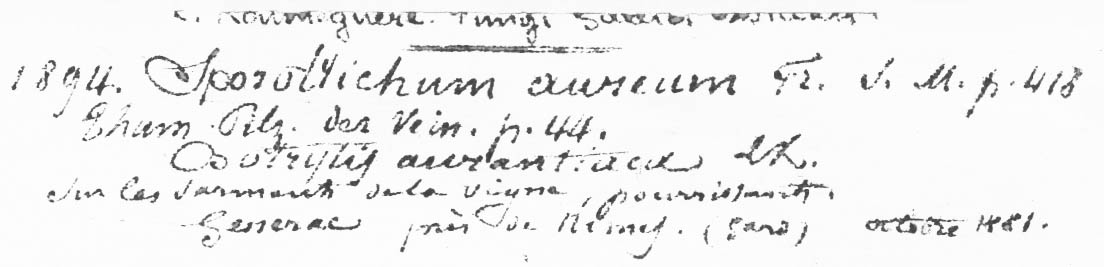 C. Roumeguère. Fungi Gallici exsiccati.
1894. Sporotrichum aureum Fr. S. M. p. 418
Thum. Pilz. der Wein. p. 44.
Botrytis aurantiaca Lk.
Sur les sarments de la vigne, pourrissants.
Generac près de Nimes. (Gard) octobre 1881.